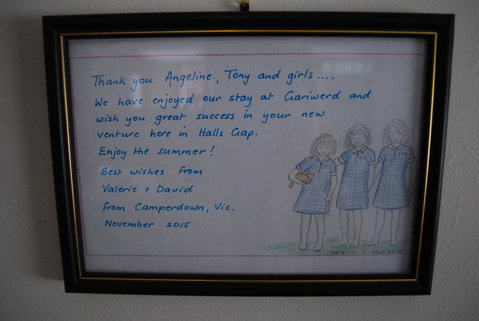 Thank you Angeline, Tony and girls....
We have enjoyed our stay at Gariwerd and
wish you great success in your new
venture here in Halls Gap.
Enjoy the summer!
Best wishes from
Valerie + David
from Camperdown, Vic.
November 2015